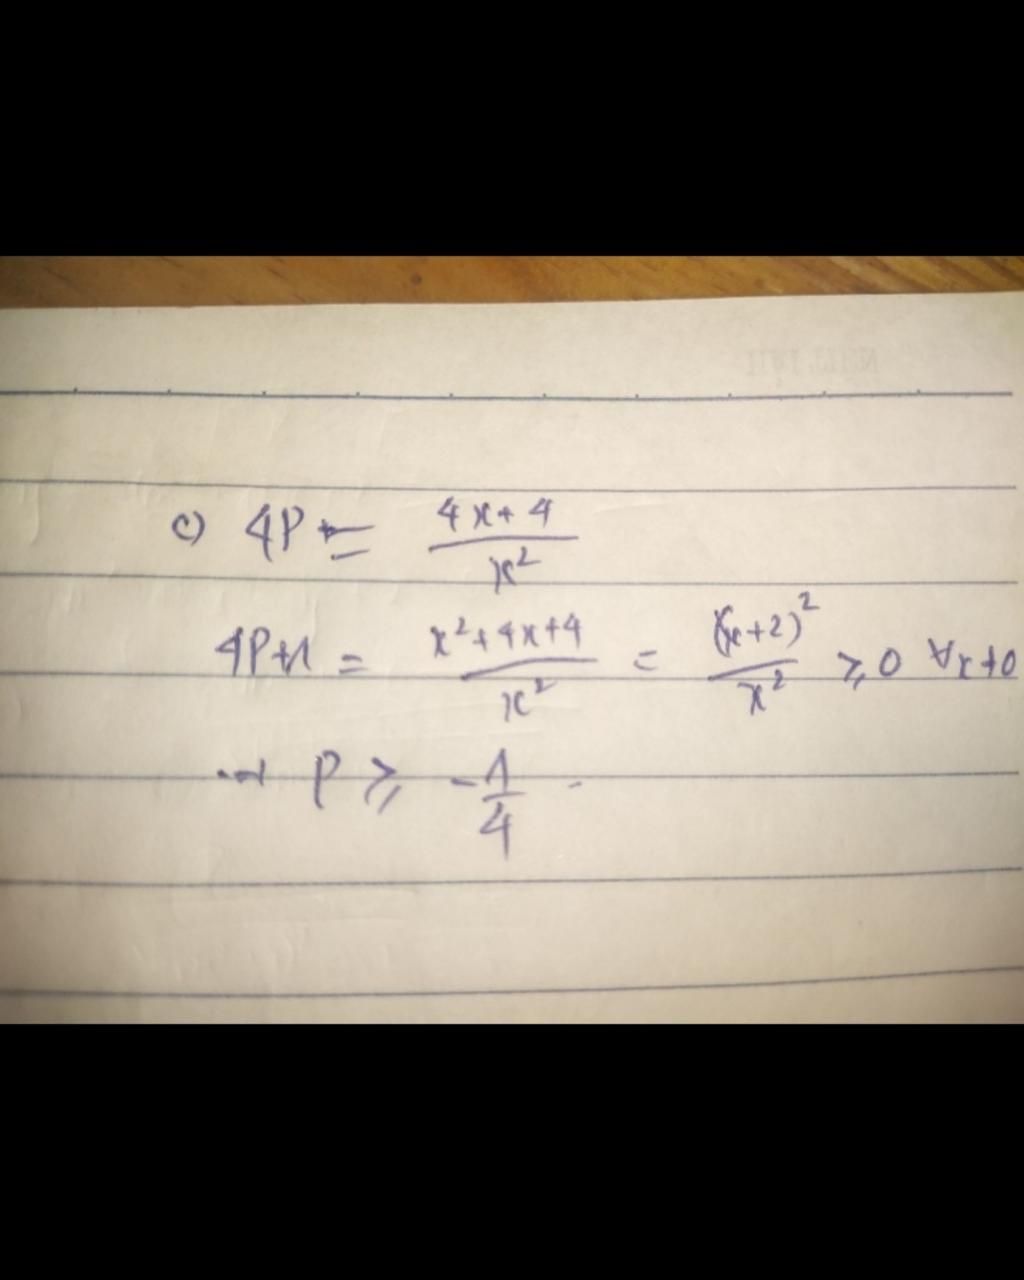 c) 4P = \frac{4x+4}{x^2}
4P+1 = \frac{x^2+4x+4}{x^2} = \frac{(x+2)^2}{x^2} ⩾ 0 ∀x≠0
→ P ⩾ -\frac{1}{4}.